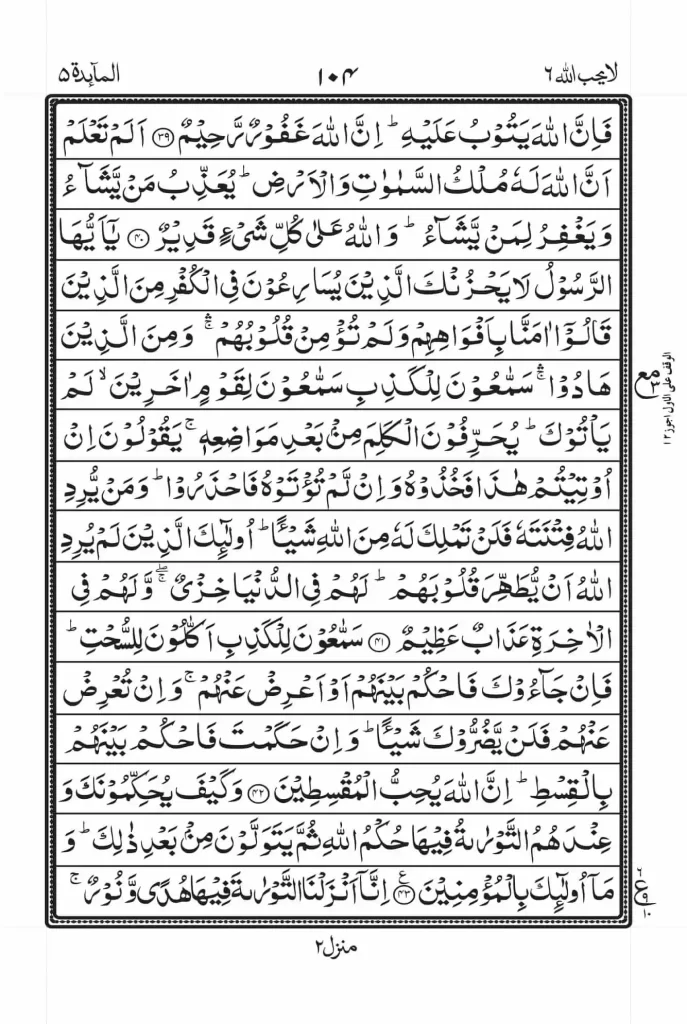 لا یحب الله ٦
١٠٤
المآىِٕدة ٥
فَاِنَّ اللّٰهَ یَتُوْبُ عَلَیْهِ ؕ اِنَّ اللّٰهَ غَفُوْرٌ رَّحِیْمٌ ﴿۳۹﴾ اَلَمْ تَعْلَمْ
اَنَّ اللّٰهَ لَهٗ مُلْكُ السَّمٰوٰتِ وَالْاَرْضِ ؕ یُعَذِّبُ مَنْ یَّشَآءُ
وَیَغْفِرُ لِمَنْ یَّشَآءُ ؕ وَاللّٰهُ عَلٰی كُلِّ شَیْءٍ قَدِیْرٌ ﴿۴۰﴾ یٰۤاَیُّهَا
الرَّسُوْلُ لَا یَحْزُنْكَ الَّذِیْنَ یُسَارِعُوْنَ فِی الْكُفْرِ مِنَ الَّذِیْنَ
قَالُوْۤا اٰمَنَّا بِاَفْوَاهِهِمْ وَلَمْ تُؤْمِنْ قُلُوْبُهُمْ ۛۚ وَمِنَ الَّذِیْنَ
هَادُوْا ۛۚ سَمّٰعُوْنَ لِلْكَذِبِ سَمّٰعُوْنَ لِقَوْمٍ اٰخَرِیْنَ ۙ لَمْ
یَاْتُوْكَ ؕ یُحَرِّفُوْنَ الْكَلِمَ مِنْۢ بَعْدِ مَوَاضِعِهٖ ۚ یَقُوْلُوْنَ اِنْ
اُوْتِیْتُمْ هٰذَا فَخُذُوْهُ وَاِنْ لَّمْ تُؤْتَوْهُ فَاحْذَرُوْا ؕ وَمَنْ یُّرِدِ
اللّٰهُ فِتْنَتَهٗ فَلَنْ تَمْلِكَ لَهٗ مِنَ اللّٰهِ شَیْـًٔا ؕ اُولٰٓىِٕكَ الَّذِیْنَ لَمْ یُرِدِ
اللّٰهُ اَنْ یُّطَهِّرَ قُلُوْبَهُمْ ؕ لَهُمْ فِی الدُّنْیَا خِزْیٌ ۖۚ وَّلَهُمْ فِی
الْاٰخِرَةِ عَذَابٌ عَظِیْمٌ ﴿۴۱﴾ سَمّٰعُوْنَ لِلْكَذِبِ اَكّٰلُوْنَ لِلسُّحْتِ ؕ
فَاِنْ جَآءُوْكَ فَاحْكُمْ بَیْنَهُمْ اَوْ اَعْرِضْ عَنْهُمْ ۚ وَاِنْ تُعْرِضْ
عَنْهُمْ فَلَنْ یَّضُرُّوْكَ شَیْـًٔا ؕ وَاِنْ حَكَمْتَ فَاحْكُمْ بَیْنَهُمْ
بِالْقِسْطِ ؕ اِنَّ اللّٰهَ یُحِبُّ الْمُقْسِطِیْنَ ﴿۴۲﴾ وَكَیْفَ یُحَكِّمُوْنَكَ وَ
عِنْدَهُمُ التَّوْرٰىةُ فِیْهَا حُكْمُ اللّٰهِ ثُمَّ یَتَوَلَّوْنَ مِنْۢ بَعْدِ ذٰلِكَ ؕ وَ
مَاۤ اُولٰٓىِٕكَ بِالْمُؤْمِنِیْنَ ﴿۴۳﴾ ع اِنَّاۤ اَنْزَلْنَا التَّوْرٰىةَ فِیْهَا هُدًی وَّنُوْرٌ ۚ
مع ٣
ع
٦
٩
١٠
منزل ٢